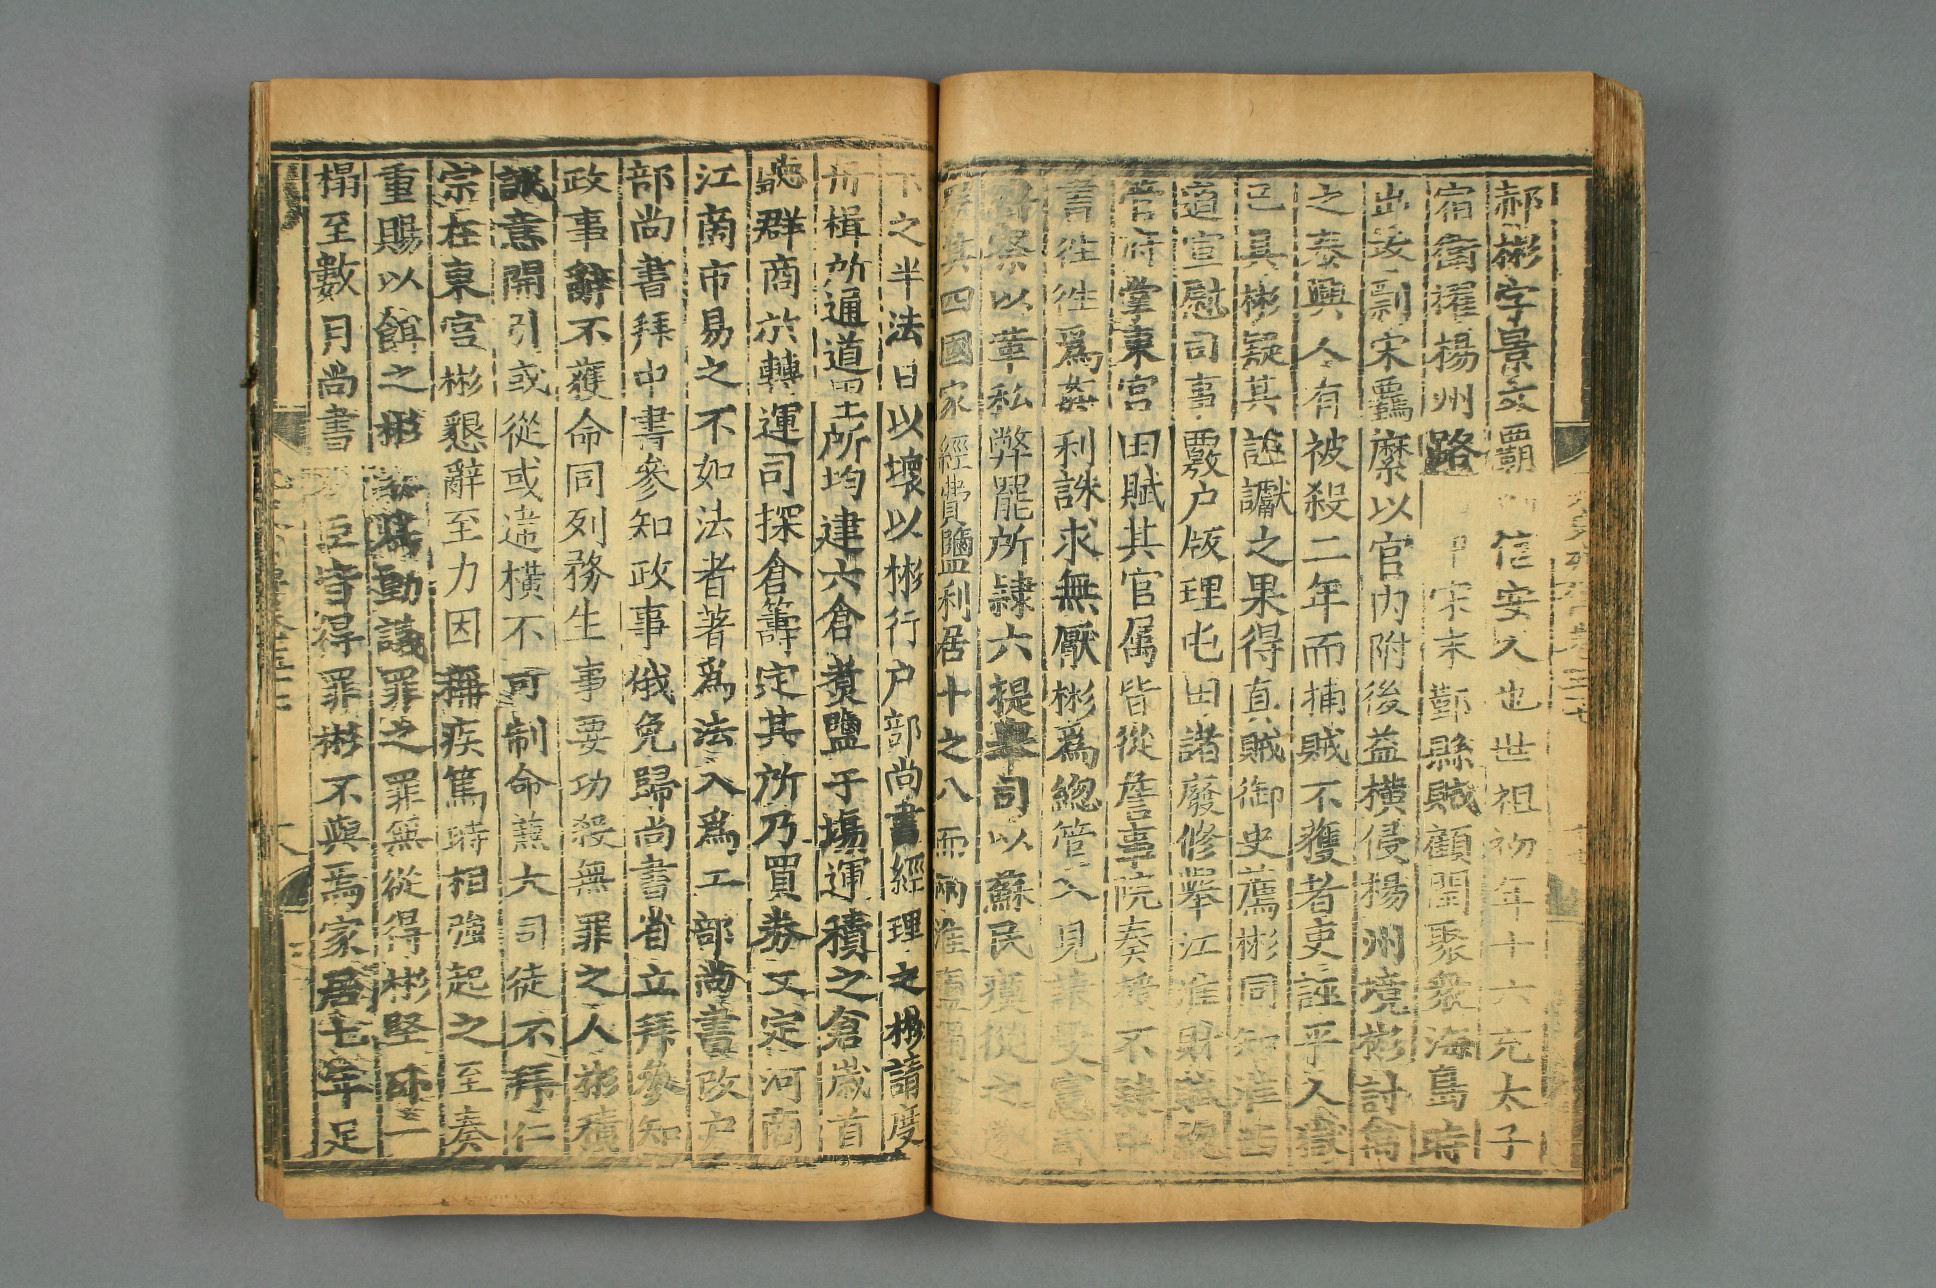 郝彬字景文霸信安人也世祖初年十六充太子
宿衛擢楊州路宋末鄞縣賊顧閏聚衆海島時
出攻剽宋羈縻以官内附後益横侵楊州境彬討禽
之泰興人有被殺二年而捕賊不獲者吏誣平人獄
已具彬疑其誣讞之果得真賊御史薦彬同知淮西
道宣慰司事覈户版理屯田諸廢修舉江淮財賦總
管府掌東宫田賦其官属皆從詹事院奏授不隷中
書徃徃爲姦利誅求無厭彬爲緫管入見
察以革私弊罷所隷六提舉司以蘇民瘼從之
其四國家經費鹽利居十之八而兩淮鹽
下之半法日以壞以彬行户部尚書經理之彬請度
舟楫所通道里所均建六倉煮鹽于塲運積之倉歲首
聽群商於轉運司探倉籌定其所乃買劵又定河商
江商市易之不如法者著爲法入爲工部尚書改户
部尚書拜中書參知政事俄免歸尚書省立拜參知
政事辭不獲命同列務生事要功殺無罪之人彬積
誠意開引或從或違横不可制命兼大司徒不拜仁
宗在東宫彬懇辭至力因稱疾篤時相強起之至奏
重賜以餌之彬爲動議罪之罪無從得彬堅卧一
榻至數月尚書臣皆得罪彬不與焉家居七年足